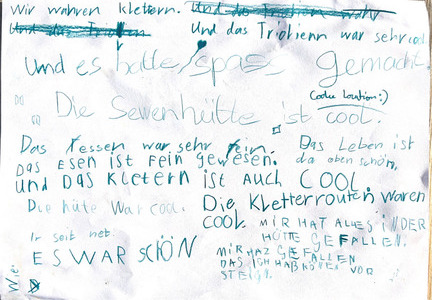 Wir wahren klettern.
Und das Trohienn war sehr cool
und es hatte spas gemacht.
Die Sewenhütte ist cool.
(Coole Location :)
Das Fessen war sehr fein.
Das Leben ist
da oben schön.
DAS ESEN IST FEIN GEWESEN.
UND DAS KLETERN IST AUCH COOL
Die hüte War cool.
Die Kletterrouten waren
cool.
MIR HAT ALLES IN DER
HÜTTE GEFALLEN.
Ir seit net.
ES WAR SCHÖN
MIR HAZ GEFALLEN
DAS ICH
VOR
STEIGN.
Wie